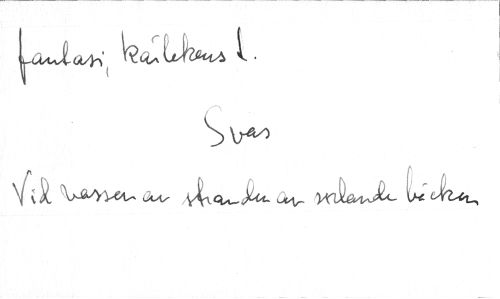 fantasi, kärlekens d.
Svas
Vid vassen av stranden av sorlande bäcken